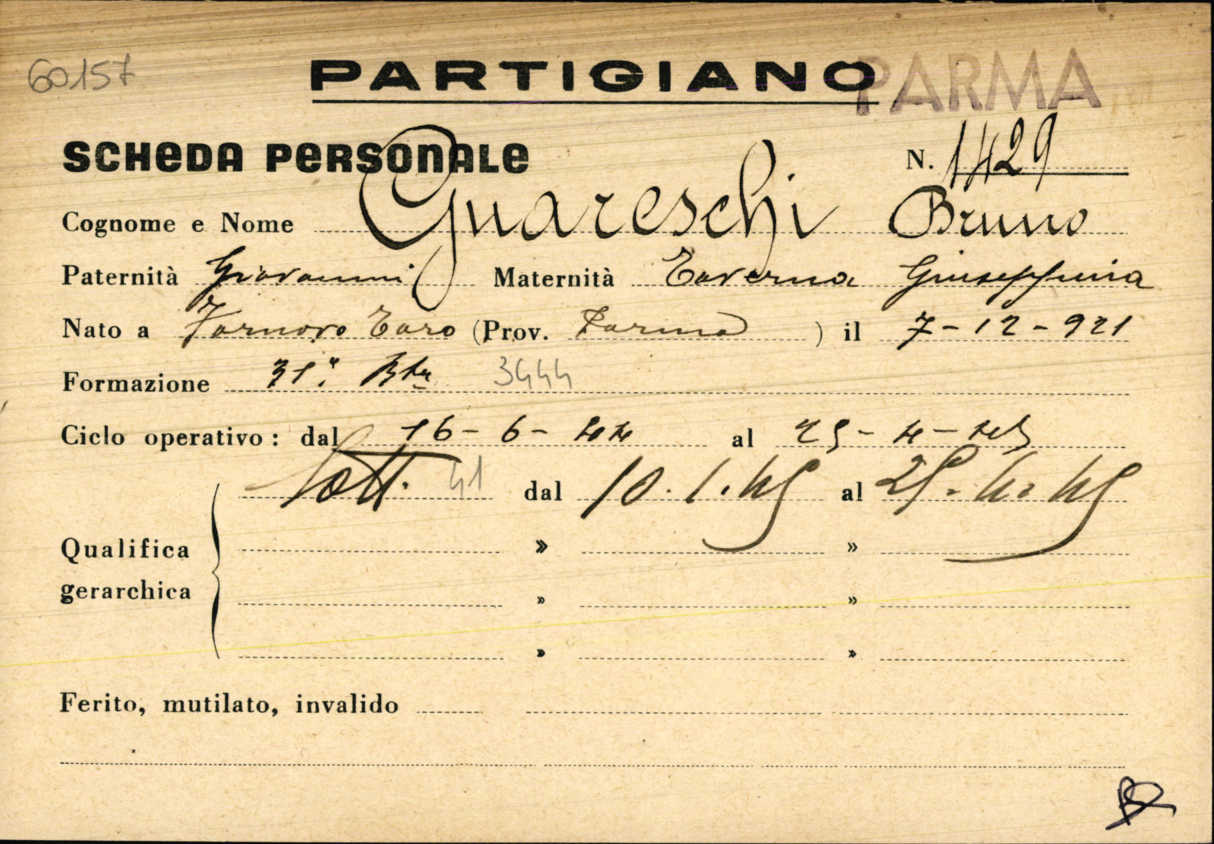 60157 PARTIGIANO PARMA
SCHEDA PERSONALE N. 1429
Cognome e Nome Guareschi Bruno
Paternità Giovanni Maternità Taverna Giuseppina
Nato a Fornovo Taro (Prov. Parma ) il 7-12-921
Formazione 31ª Bta 3444
Ciclo operativo: dal 16-6-44 al 25-4-45
Sott. 41 dal 10.1.45 al 25.4.45
Qualifica » »
gerarchica » »
» »
Ferito, mutilato, invalido